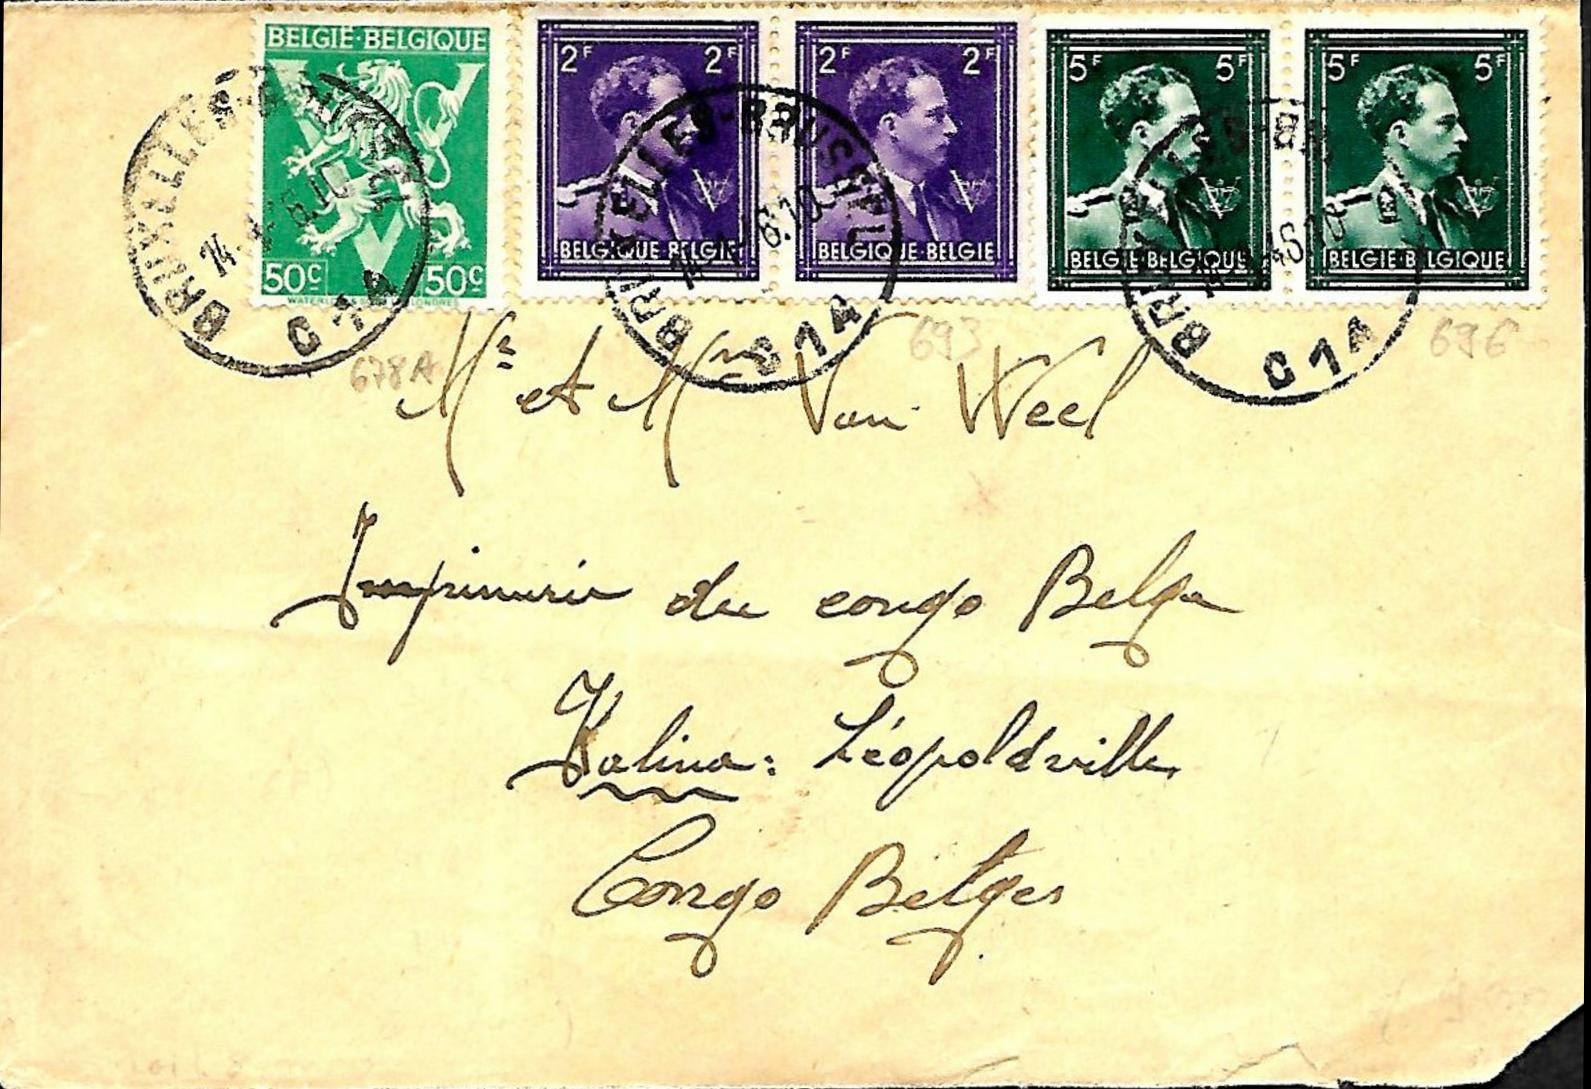 BELGIË-BELGIQUE
50c 50c
2F 2F
BELGIQUE-BELGIE
2F 2F
BELGIQUE-BELGIE
5F 5F
BELGIE-BELGIQUE
5F 5F
BELGIE-BELGIQUE
BRUXELLES-BRUSSEL
C1A
BRUXELLES-BRUSSEL
C1A
C1A
678A 693 696
Mr et Mme Van Weel
Imprimerie du congo Belge
Kalina: Léopoldville
Congo Belges